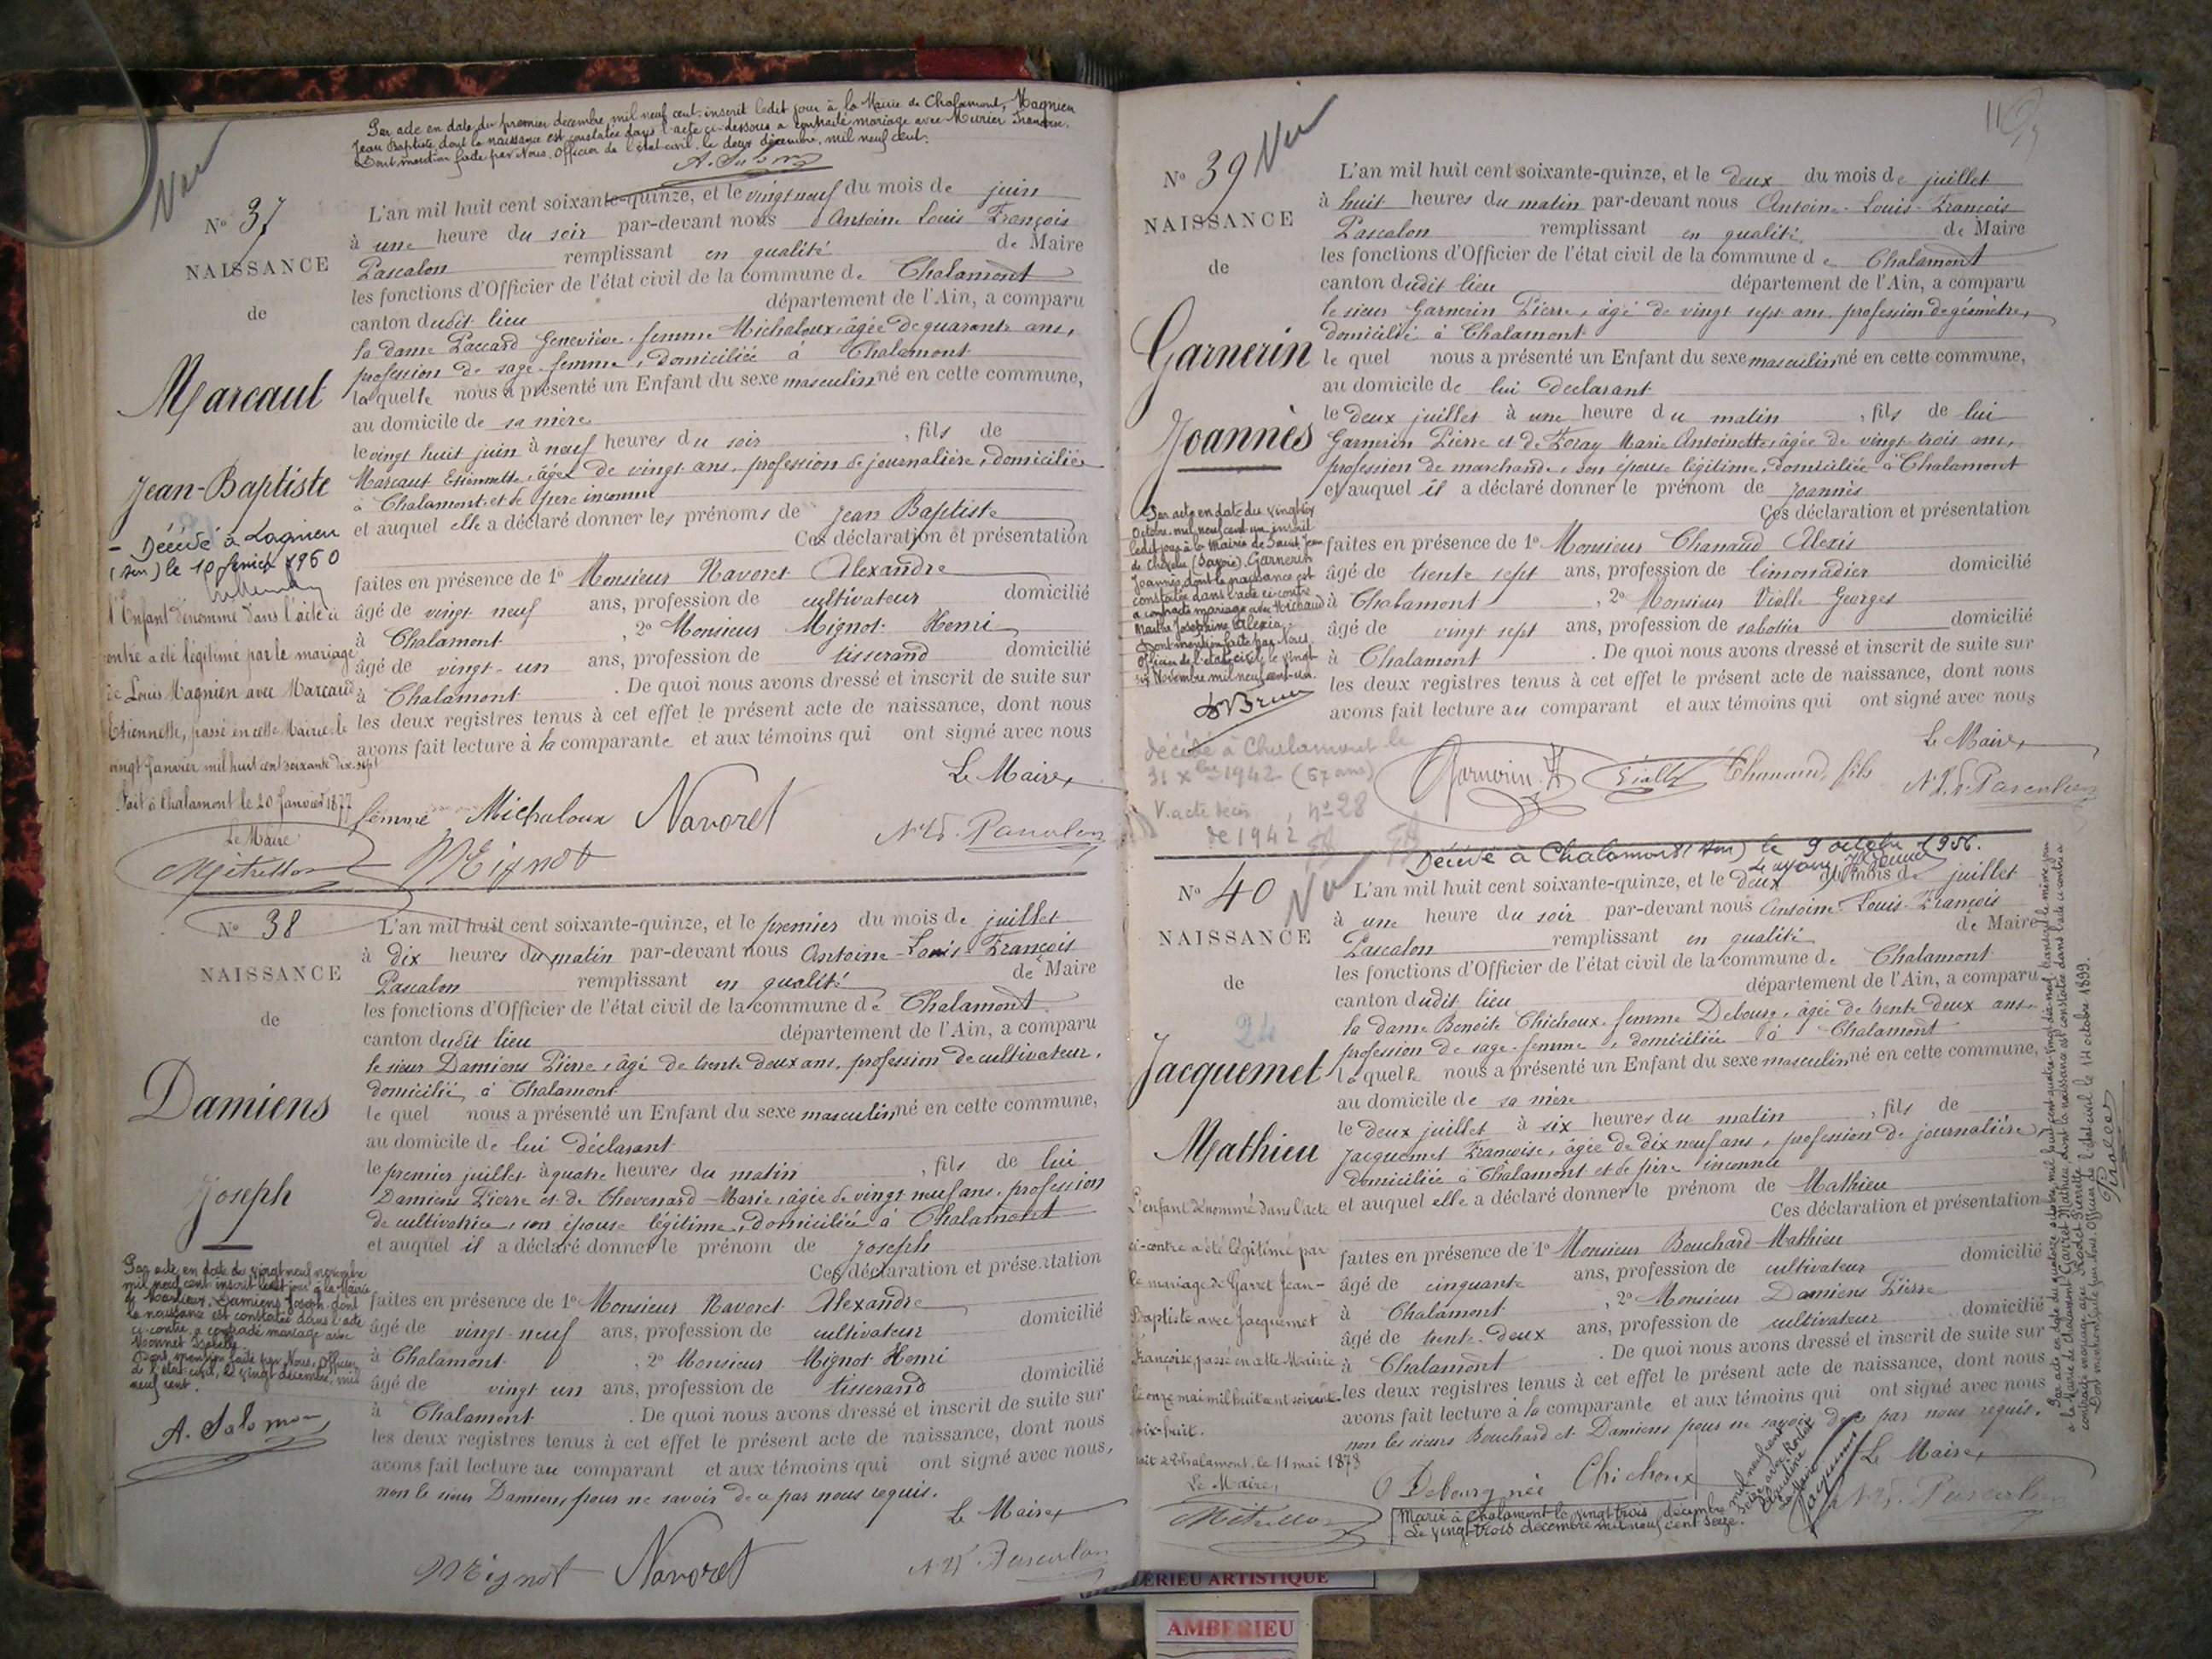 Par acte en date du premier décembre mil neuf cent inscrit ledit jour à la Mairie de Chalamont, Magnien
Jean Baptiste, dont la naissance est constatée dans l'acte ci-dessous a contracté mariage avec Murier Francine.
Dont mention faite par Nous, Officier de l'état-civil le deux décembre mil neuf cent.
A. Salomon
Nº 37
NAISSANCE
de
Marcaut
Jean-Baptiste
- Décédé à Lagnieu
(Ain) le 10 février 1960
l'Enfant dénommé dans l'acte ci
contre a été légitimé par le mariage
de Louis Magnien avec Marcaud
Etiennette, passé en cette Mairie le
vingt Janvier mil huit cent soixante dix-sept
Fait à Chalamont le 20 Janvier 1877
Le Maire
Mitrillon
L'an mil huit cent soixante-quinze, et le vingt neuf du mois de juin
à une heure du soir par-devant nous Antoine Louis François
Pascalon remplissant en qualité de Maire
les fonctions d'Officier de l'état civil de la commune de Chalamont
canton dudit lieu département de l'Ain, a comparu
la dame Paccard Geneviève, femme Michaloux, âgée de quarante ans,
profession de sage-femme, domiciliée à Chalamont
laquelle nous a présenté un Enfant du sexe masculin né en cette commune,
au domicile de sa mère
le vingt huit juin à neuf heures du soir , fils de
Marcaut Etiennette, âgée de vingt ans, profession de journalière, domiciliée
à Chalamont et de père inconnu
et auquel elle a déclaré donner les prénoms de Jean Baptiste
Ces déclaration et présentation
faites en présence de 1º Monsieur Navoret Alexandre
âgé de vingt neuf ans, profession de cultivateur domicilié
à Chalamont , 2º Monsieur Mignot Henri
âgé de vingt-un ans, profession de tisserand domicilié
à Chalamont . De quoi nous avons dressé et inscrit de suite sur
les deux registres tenus à cet effet le présent acte de naissance, dont nous
avons fait lecture à la comparante et aux témoins qui ont signé avec nous
Le Maire
femme Michaloux Navoret
Mignot
Pascalon
Nº 38
NAISSANCE
de
Damiens
Joseph
Par acte en date du vingt neuf novembre
mil neuf cent inscrit ledit jour à la Mairie
de Marlieux, Damiens Joseph dont
la naissance est constatée dans l'acte
ci-contre a contracté mariage avec
Monnet Isabelle
Dont mention faite par Nous, Officier
de l'état-civil, le vingt décembre mil
neuf cent.
A. Salomon
L'an mil huit cent soixante-quinze, et le premier du mois de juillet
à dix heures du matin par-devant nous Antoine-Louis François
Pascalon remplissant en qualité de Maire
les fonctions d'Officier de l'état civil de la commune de Chalamont
canton dudit lieu département de l'Ain, a comparu
le sieur Damiens Pierre, âgé de trente deux ans, profession de cultivateur,
domicilié à Chalamont
lequel nous a présenté un Enfant du sexe masculin né en cette commune,
au domicile de lui déclarant
le premier juillet à quatre heures du matin , fils de lui
Damiens Pierre et de Chevenard Marie, âgée de vingt neuf ans, profession
de cultivatrice, son épouse légitime, domiciliée à Chalamont
et auquel il a déclaré donner le prénom de Joseph
Ces déclaration et présentation
faites en présence de 1º Monsieur Navoret Alexandre
âgé de vingt-neuf ans, profession de cultivateur domicilié
à Chalamont , 2º Monsieur Mignot Henri
âgé de vingt un ans, profession de tisserand domicilié
à Chalamont . De quoi nous avons dressé et inscrit de suite sur
les deux registres tenus à cet effet le présent acte de naissance, dont nous
avons fait lecture au comparant et aux témoins qui ont signé avec nous,
non le sieur Damiens pour ne savoir de ce par nous requis.
Le Maire
Mignot Navoret Pascalon
Nº 39
NAISSANCE
de
Garnerin
Joannès
Par acte en date du vingt six
Octobre mil neuf cent un, inscrit
ledit jour à la Mairie de Saint Jean
de Chevelu (Savoie), Garnerin
Joannès, dont la naissance est
constatée dans l'acte ci-contre
a contracté mariage avec Michaud
Marthe Joséphine Alexia.
Dont mention faite par Nous
Officier de l'état civil le vingt
six Novembre mil neuf cent un.
décédé à Chalamont le
31 Xbre 1942 (67 ans)
V. acte décès nº 28
de 1942
L'an mil huit cent soixante-quinze, et le deux du mois de juillet
à huit heures du matin par-devant nous Antoine-Louis-François
Pascalon remplissant en qualité de Maire
les fonctions d'Officier de l'état civil de la commune de Chalamont
canton dudit lieu département de l'Ain, a comparu
le sieur Garnerin Pierre, âgé de vingt sept ans, profession de géomètre,
domicilié à Chalamont
lequel nous a présenté un Enfant du sexe masculin né en cette commune,
au domicile de lui déclarant
le deux juillet à une heure du matin , fils de lui
Garnerin Pierre et de Foray Marie Antoinette, âgée de vingt trois ans,
profession de marchande, son épouse légitime, domiciliée à Chalamont
et auquel il a déclaré donner le prénom de Joannès
Ces déclaration et présentation
faites en présence de 1º Monsieur Chanaud Alexis
âgé de trente sept ans, profession de limonadier domicilié
à Chalamont , 2º Monsieur Vialle Georges
âgé de vingt sept ans, profession de sabotier domicilié
à Chalamont . De quoi nous avons dressé et inscrit de suite sur
les deux registres tenus à cet effet le présent acte de naissance, dont nous
avons fait lecture au comparant et aux témoins qui ont signé avec nous
Le Maire
Garnerin Vialle Chanaud fils Pascalon
Décédé à Chalamont (Ain) le 9 octobre 1956.
Nº 40
NAISSANCE
de
24
Jacquemet
Mathieu
L'enfant dénommé dans l'acte
ci-contre a été légitimé par
le mariage de Garret Jean-
Baptiste avec Jacquemet
Françoise passé en cette Mairie
le onze mai mil huit cent soixante
dix-huit.
Fait à Chalamont, le 11 mai 1878
Le Maire,
Mitrillon
L'an mil huit cent soixante-quinze, et le deux du mois de juillet
à une heure du soir par-devant nous Antoine-Louis-François
Pascalon remplissant en qualité de Maire
les fonctions d'Officier de l'état civil de la commune de Chalamont
canton dudit lieu département de l'Ain, a comparu
la dame Benoite Chichoux, femme Debourg, âgée de trente deux ans,
profession de sage-femme, domiciliée à Chalamont
laquelle nous a présenté un Enfant du sexe masculin né en cette commune,
au domicile de sa mère
le deux juillet à six heures du matin , fils de
Jacquemet Françoise, âgée de dix neuf ans, profession de journalière,
domiciliée à Chalamont et de père inconnu
et auquel elle a déclaré donner le prénom de Mathieu
Ces déclaration et présentation
faites en présence de 1º Monsieur Bouchard Mathieu
âgé de cinquante ans, profession de cultivateur domicilié
à Chalamont , 2º Monsieur Damiens Pierre
âgé de trente-deux ans, profession de cultivateur domicilié
à Chalamont . De quoi nous avons dressé et inscrit de suite sur
les deux registres tenus à cet effet le présent acte de naissance, dont nous
avons fait lecture à la comparante et aux témoins qui ont signé avec nous
non les sieurs Bouchard et Damiens pour ne savoir de ce par nous requis.
Le Maire
Debourg née Chichoux
Marié à Chalamont le vingt trois décembre mil neuf cent
seize avec Rodet
Le vingt-trois décembre mil neuf cent seize.
contracté mariage avec Rodet Pierrette
Dont mention faite par Nous, Officier de l'état civil le 14 octobre 1899.
AMBERIEU ARTISTIQUE
AMBERIEU